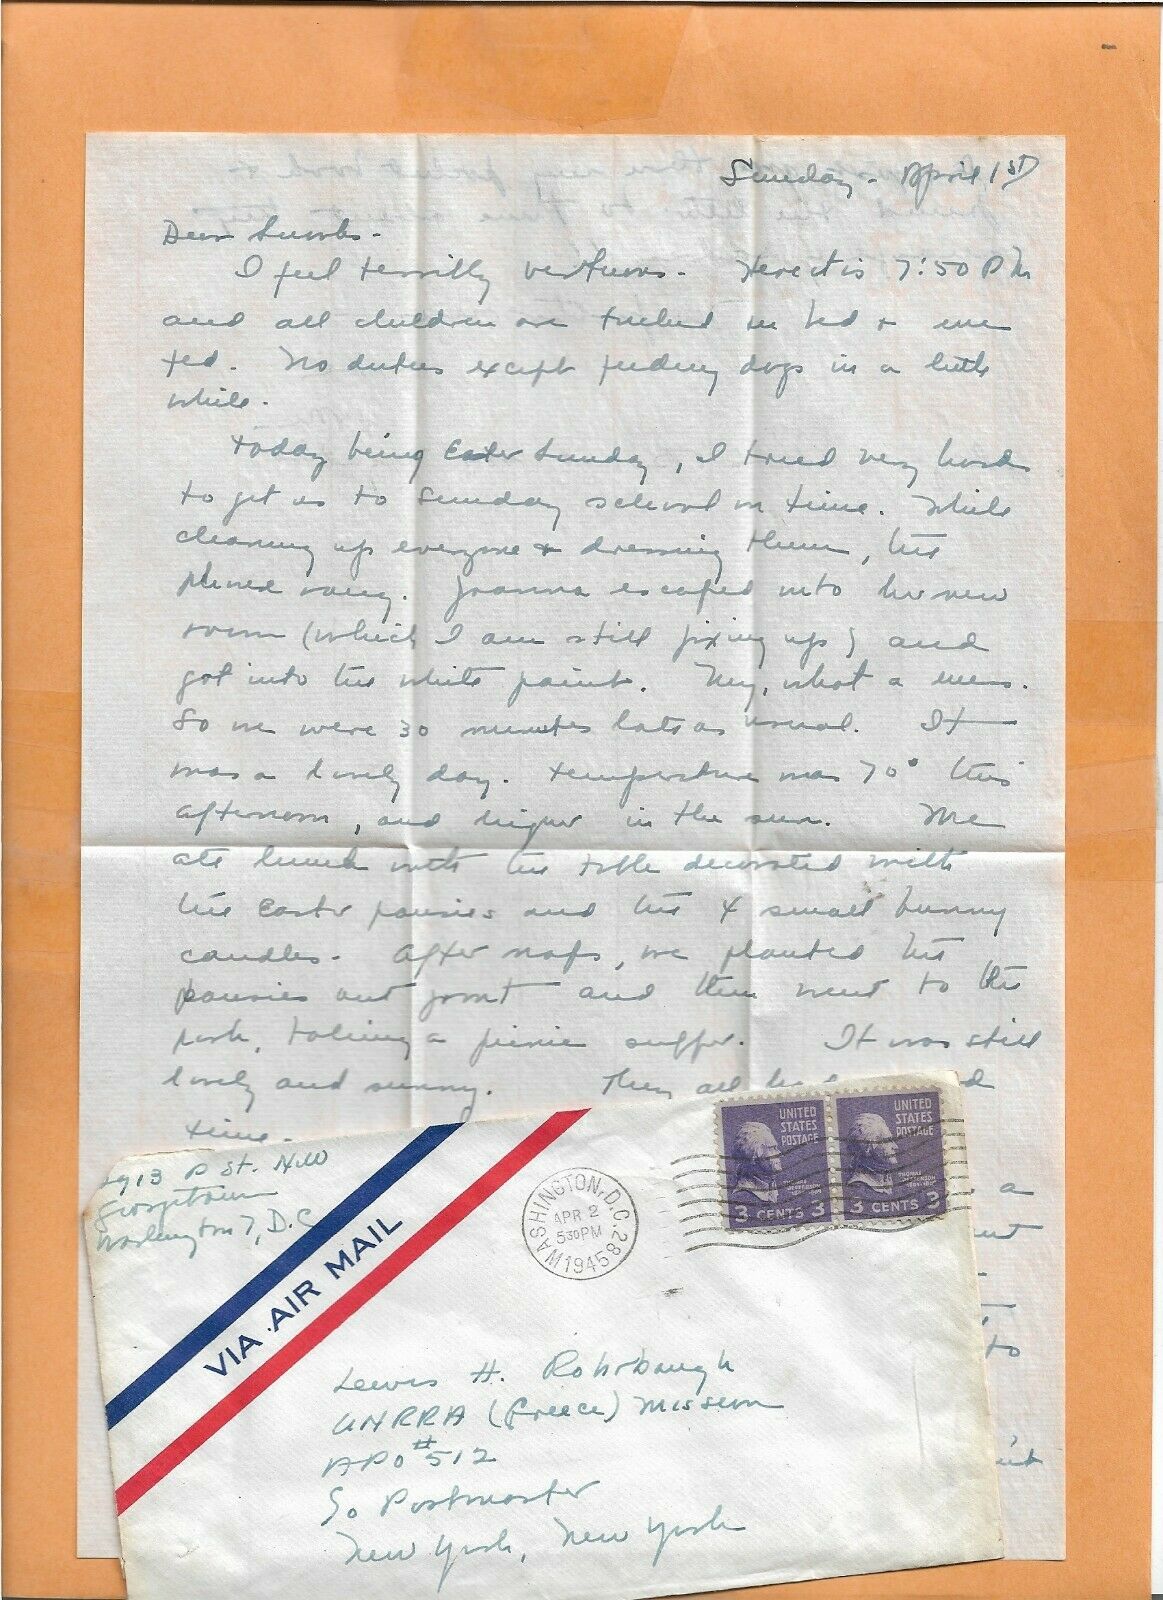 Sunday - April 1st
Dear
I feel terribly virtuous. Here it is 7:50 PM
and all children are tucked in bed &
fed. No duties except feeding dogs in a little
while.
Today being Easter Sunday, I tried very hard
to get us to Sunday school on time. While
cleaning up everyone & dressing them, the
phone rang. Joanna escaped into her new
room (which I am still fixing up) and
got into the white paint. My, what a mess.
So we were 30 minutes late as usual. It
was a lovely day. Temperature was 70° this
afternoon, and higher in the sun. We
ate lunch with the table decorated with
the Easter pansies and the 4 small bunny
candles. After naps, we planted the
pansies out front and then went to the
park, taking a picnic supper. It was still
lovely and sunny. They all had
time.
a
to
2913 P St. N.W
Georgetown
Washington 7, D.C.
VIA AIR MAIL
WASHINGTON, D.C. 28
APR 2
5 30 PM
1945
UNITED STATES POSTAGE
THOMAS JEFFERSON
3 CENTS 3
UNITED STATES POSTAGE
THOMAS JEFFERSON
3 CENTS 3
Lewis H. Rohrbaugh
UNRRA (Greece) Mission
APO #512
c/o Postmaster
New York, New York